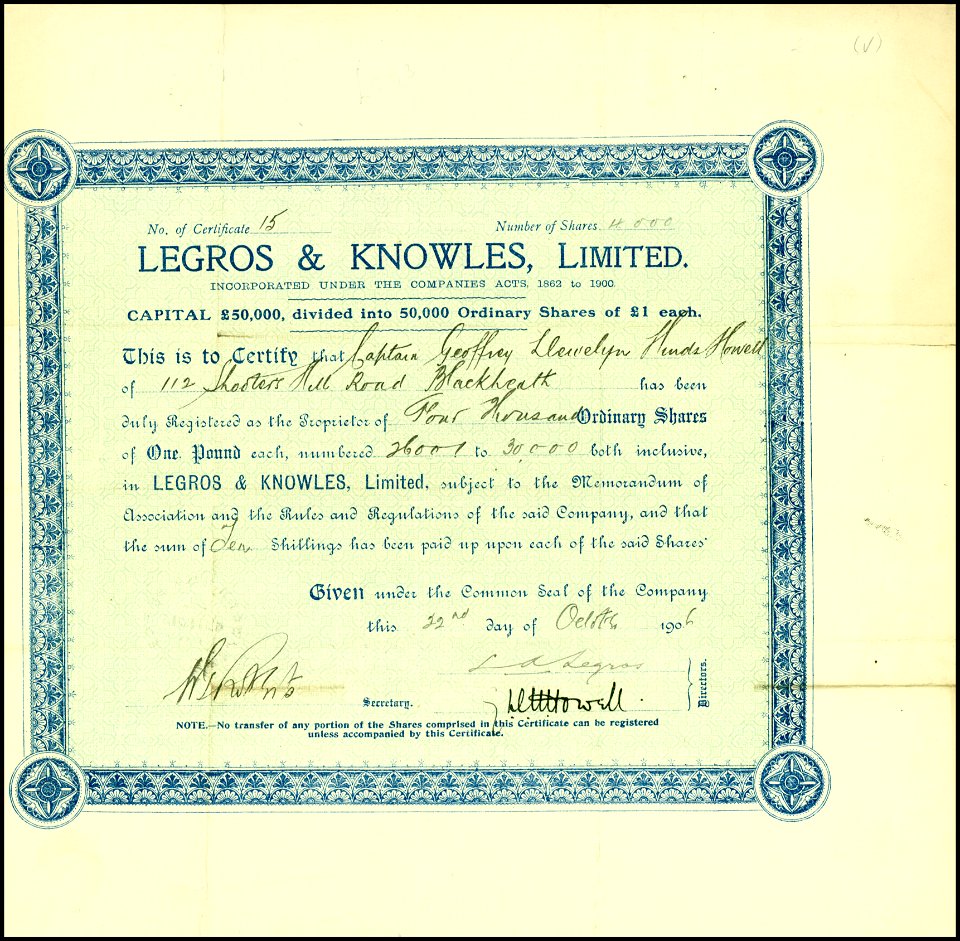 (V)
No. of Certificate 15 Number of Shares 4000
LEGROS & KNOWLES, LIMITED.
INCORPORATED UNDER THE COMPANIES ACTS, 1862 to 1900.
CAPITAL £50,000, divided into 50,000 Ordinary Shares of £1 each.
This is to Certify that Captain Geoffrey Llewelyn Hinds Howell
of 112 Shooters Hill Road Blackheath has been
duly Registered as the Proprietor of Four Thousand Ordinary Shares
of One Pound each, numbered 26001 to 30,000 both inclusive,
in LEGROS & KNOWLES, Limited, subject to the Memorandum of
Association and the Rules and Regulations of the said Company, and that
the sum of Ten Shillings has been paid up upon each of the said Shares.
Given under the Common Seal of the Company
this 22nd day of 1906
L A Legros
Howell.
Secretary.
Directors.
NOTE.—No transfer of any portion of the Shares comprised in this Certificate can be registered
unless accompanied by this Certificate.